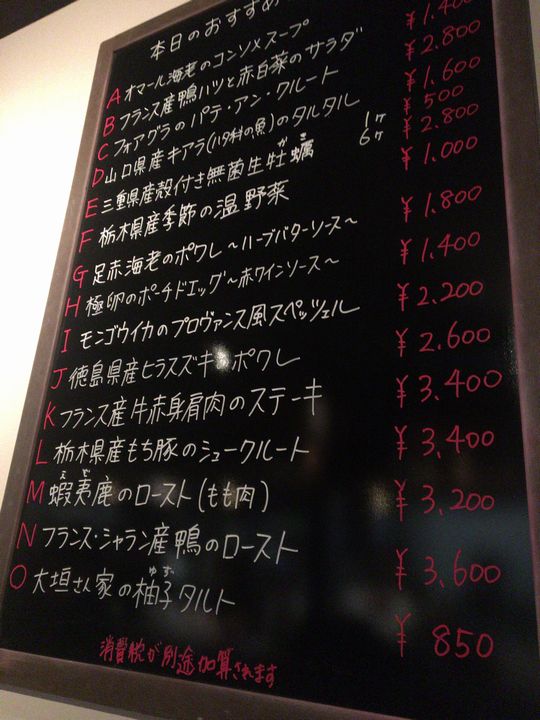 本日のおすすめ
A オマール海老のコンソメスープ
B フランス産鴨ハツと赤白菜のサラダ ¥1.400
C フォアグラのパテ・アン・クルート ¥2.800
D 山口県産キアラ(ハタ科の魚)のタルタル ¥1.600
E 三重県産殻付き無菌生牡蠣 かき 1ヶ ¥500
6ヶ ¥2.800
F 栃木県産季節の温野菜 ¥1.000
G 足赤海老のポワレ〜ハーブバターソース〜 ¥1.800
H 極卵のポーチドエッグ〜赤ワインソース〜 ¥1.400
I モンゴウイカのプロヴァンス風スペッツェル ¥2.200
J 徳島県産ヒラスズキのポワレ ¥2.600
K フランス産牛赤身肩肉のステーキ ¥3.400
L 栃木県産もち豚のシュークルート ¥3.400
M 蝦夷鹿のロースト(もも肉) えぞ ¥3.200
N フランス・シャラン産鴨のロースト ¥3.600
O 大垣さん家の柚子タルト ゆず ¥850
消費税が別途加算されます